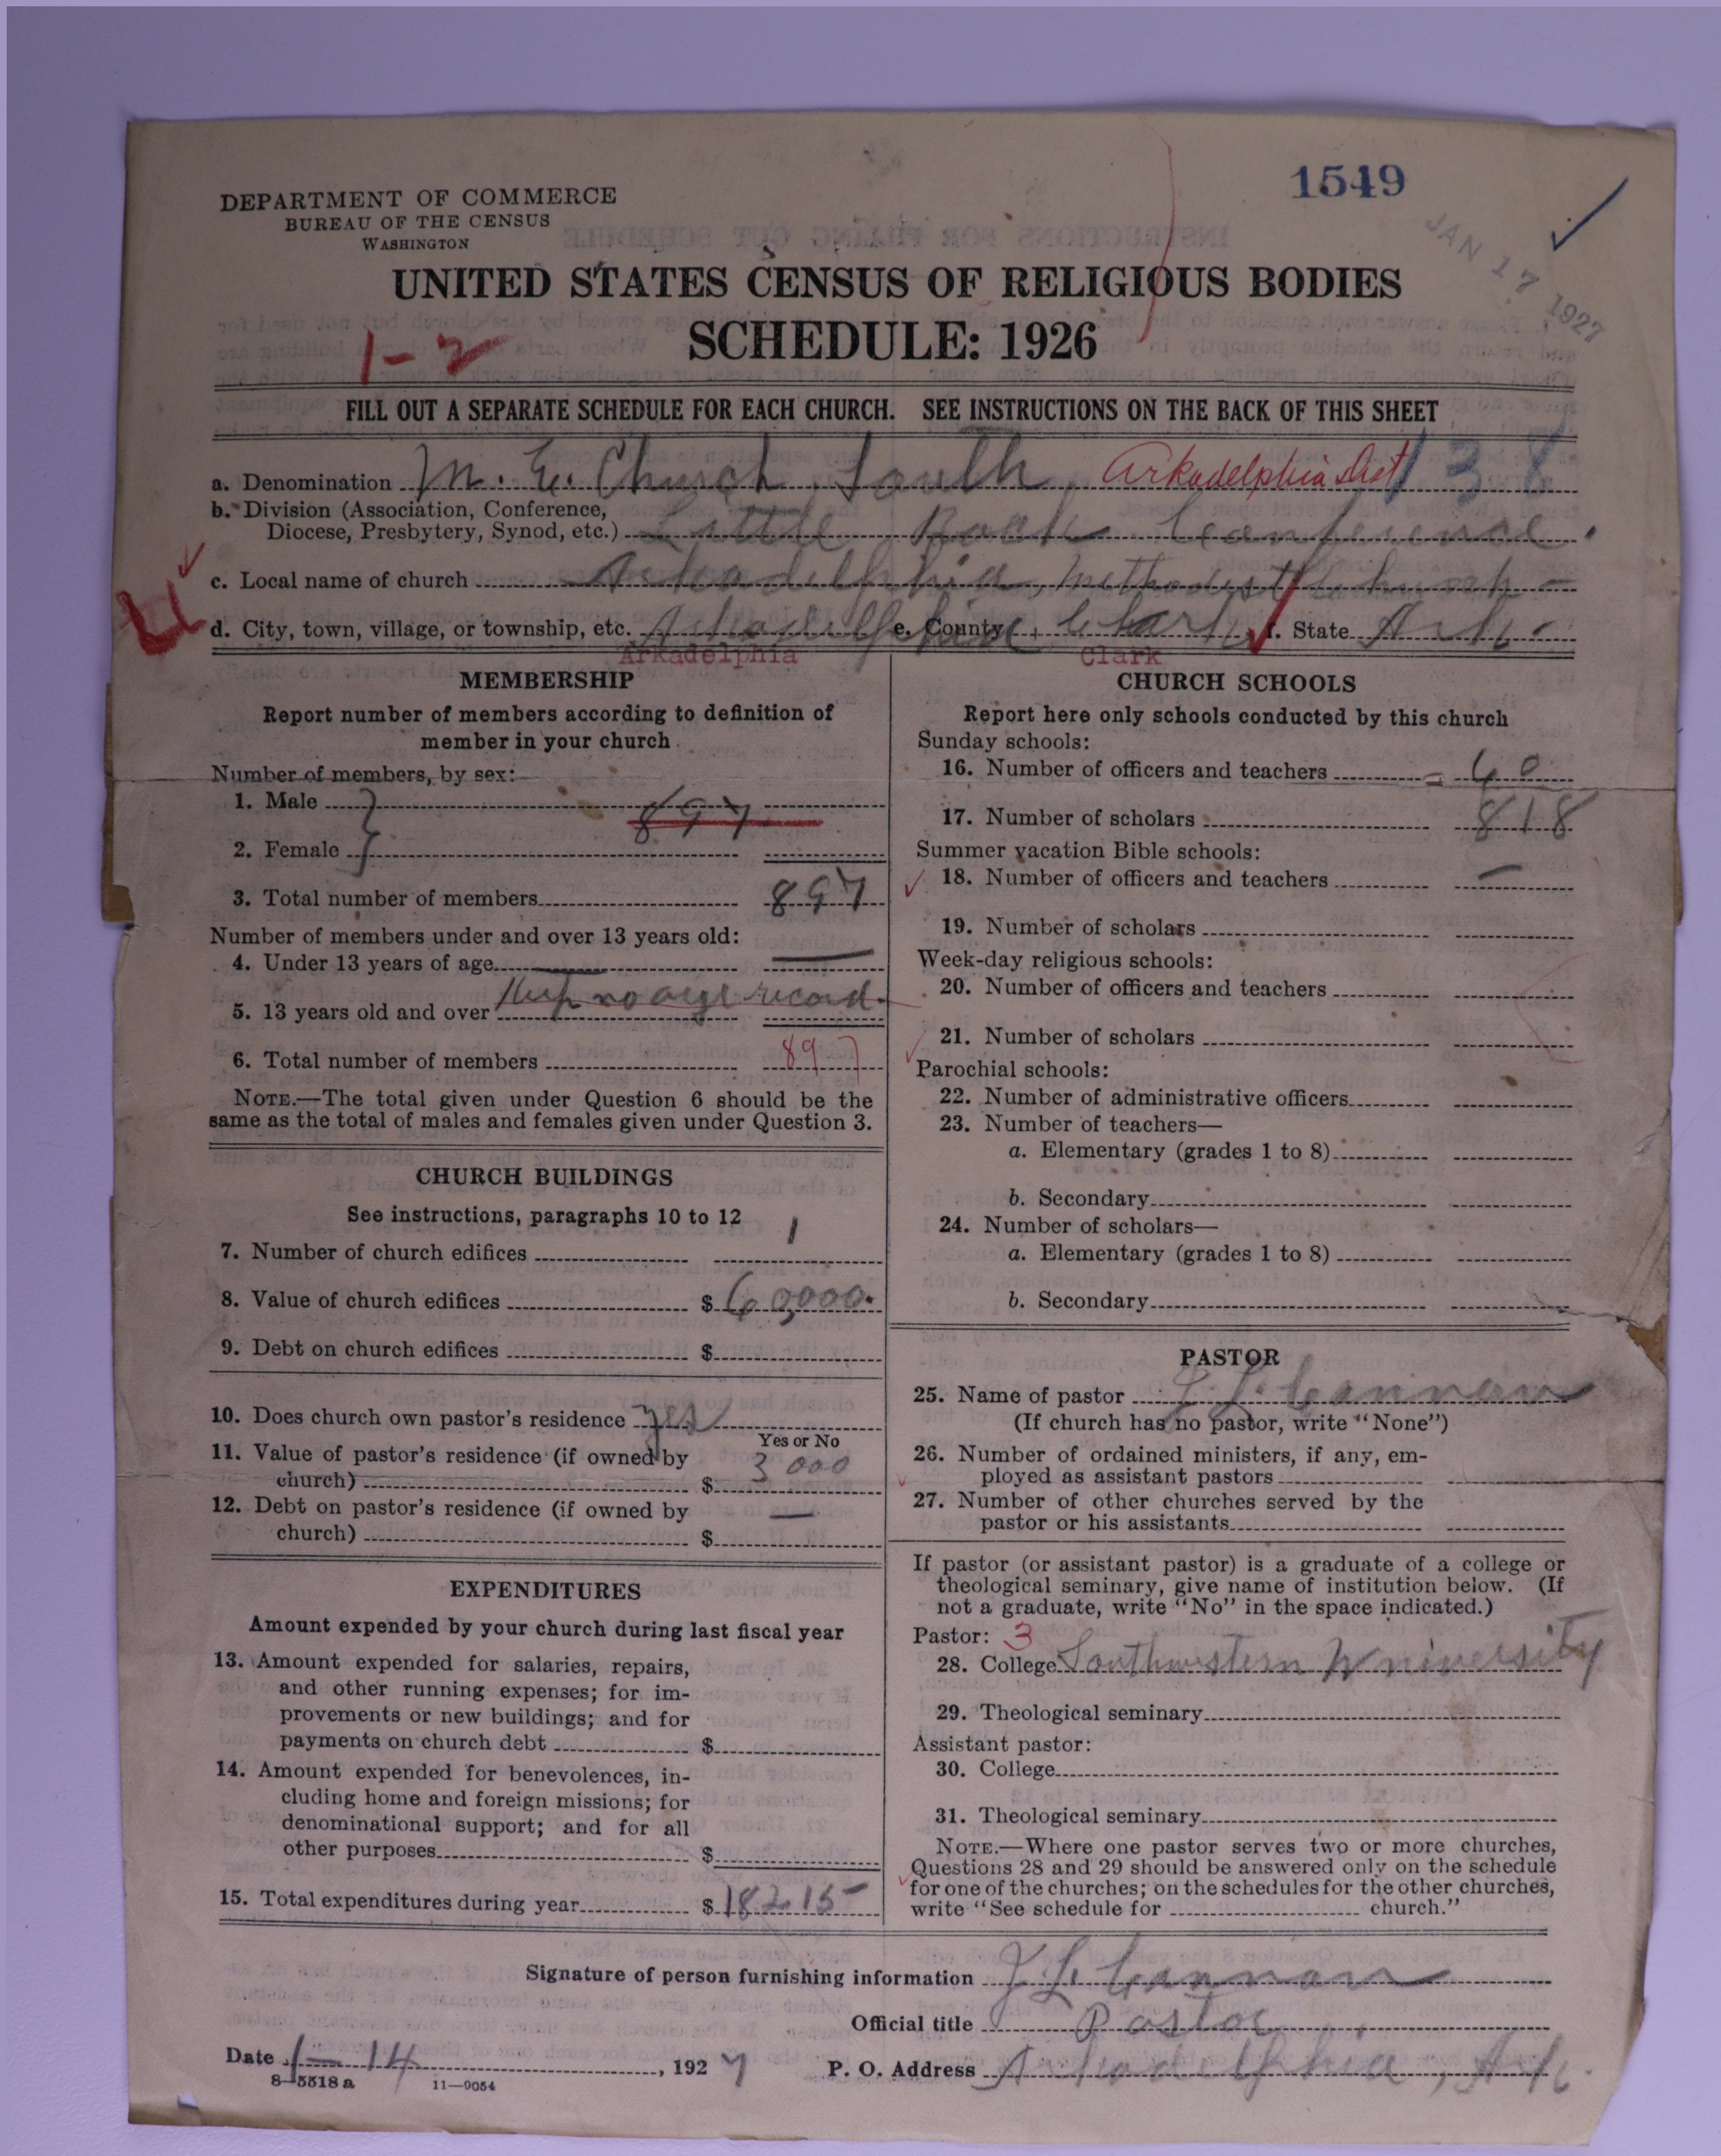 1549
DEPARTMENT OF COMMERCE
BUREAU OF THE CENSUS
WASHINGTON
JAN 17 1927
UNITED STATES CENSUS OF RELIGIOUS BODIES
SCHEDULE: 1926
1-2
FILL OUT A SEPARATE SCHEDULE FOR EACH CHURCH. SEE INSTRUCTIONS ON THE BACK OF THIS SHEET
a. Denomination M. E. Church, South, Arkadelphia Dist 138
b. Division (Association, Conference,
Diocese, Presbytery, Synod, etc.) Little Rock Conference.
c. Local name of church Arkadelphia Methodist Church
d. City, town, village, or township, etc. Arkadelphia e. County Clark f. State Ark.
Arkadelphia Clark
MEMBERSHIP
Report number of members according to definition of
member in your church
Number of members, by sex:
1. Male
897
2. Female
3. Total number of members 897
Number of members under and over 13 years old:
4. Under 13 years of age —
5. 13 years old and over Keep no age record.
6. Total number of members 897
NOTE.—The total given under Question 6 should be the
same as the total of males and females given under Question 3.
CHURCH BUILDINGS
See instructions, paragraphs 10 to 12
7. Number of church edifices 1
8. Value of church edifices $ 60,000.
9. Debt on church edifices $
10. Does church own pastor's residence Yes
Yes or No
11. Value of pastor's residence (if owned by
church) $ 3000
12. Debt on pastor's residence (if owned by
church) $ —
EXPENDITURES
Amount expended by your church during last fiscal year
13. Amount expended for salaries, repairs,
and other running expenses; for im-
provements or new buildings; and for
payments on church debt $
14. Amount expended for benevolences, in-
cluding home and foreign missions; for
denominational support; and for all
other purposes $
15. Total expenditures during year $ 18215
CHURCH SCHOOLS
Report here only schools conducted by this church
Sunday schools:
16. Number of officers and teachers 60
17. Number of scholars 818
Summer vacation Bible schools:
18. Number of officers and teachers —
19. Number of scholars
Week-day religious schools:
20. Number of officers and teachers
21. Number of scholars
Parochial schools:
22. Number of administrative officers
23. Number of teachers—
a. Elementary (grades 1 to 8)
b. Secondary
24. Number of scholars—
a. Elementary (grades 1 to 8)
b. Secondary
PASTOR
25. Name of pastor J. L. Cannon
(If church has no pastor, write "None")
26. Number of ordained ministers, if any, em-
ployed as assistant pastors
27. Number of other churches served by the
pastor or his assistants
If pastor (or assistant pastor) is a graduate of a college or
theological seminary, give name of institution below. (If
not a graduate, write "No" in the space indicated.)
Pastor: 3
28. College Southwestern University
29. Theological seminary
Assistant pastor:
30. College
31. Theological seminary
NOTE.—Where one pastor serves two or more churches,
Questions 28 and 29 should be answered only on the schedule
for one of the churches; on the schedules for the other churches,
write "See schedule for church."
Signature of person furnishing information J. L. Cannon
Official title Pastor
Date 1-14, 1927 P. O. Address Arkadelphia, Ark.
8-5518 a 11-9054